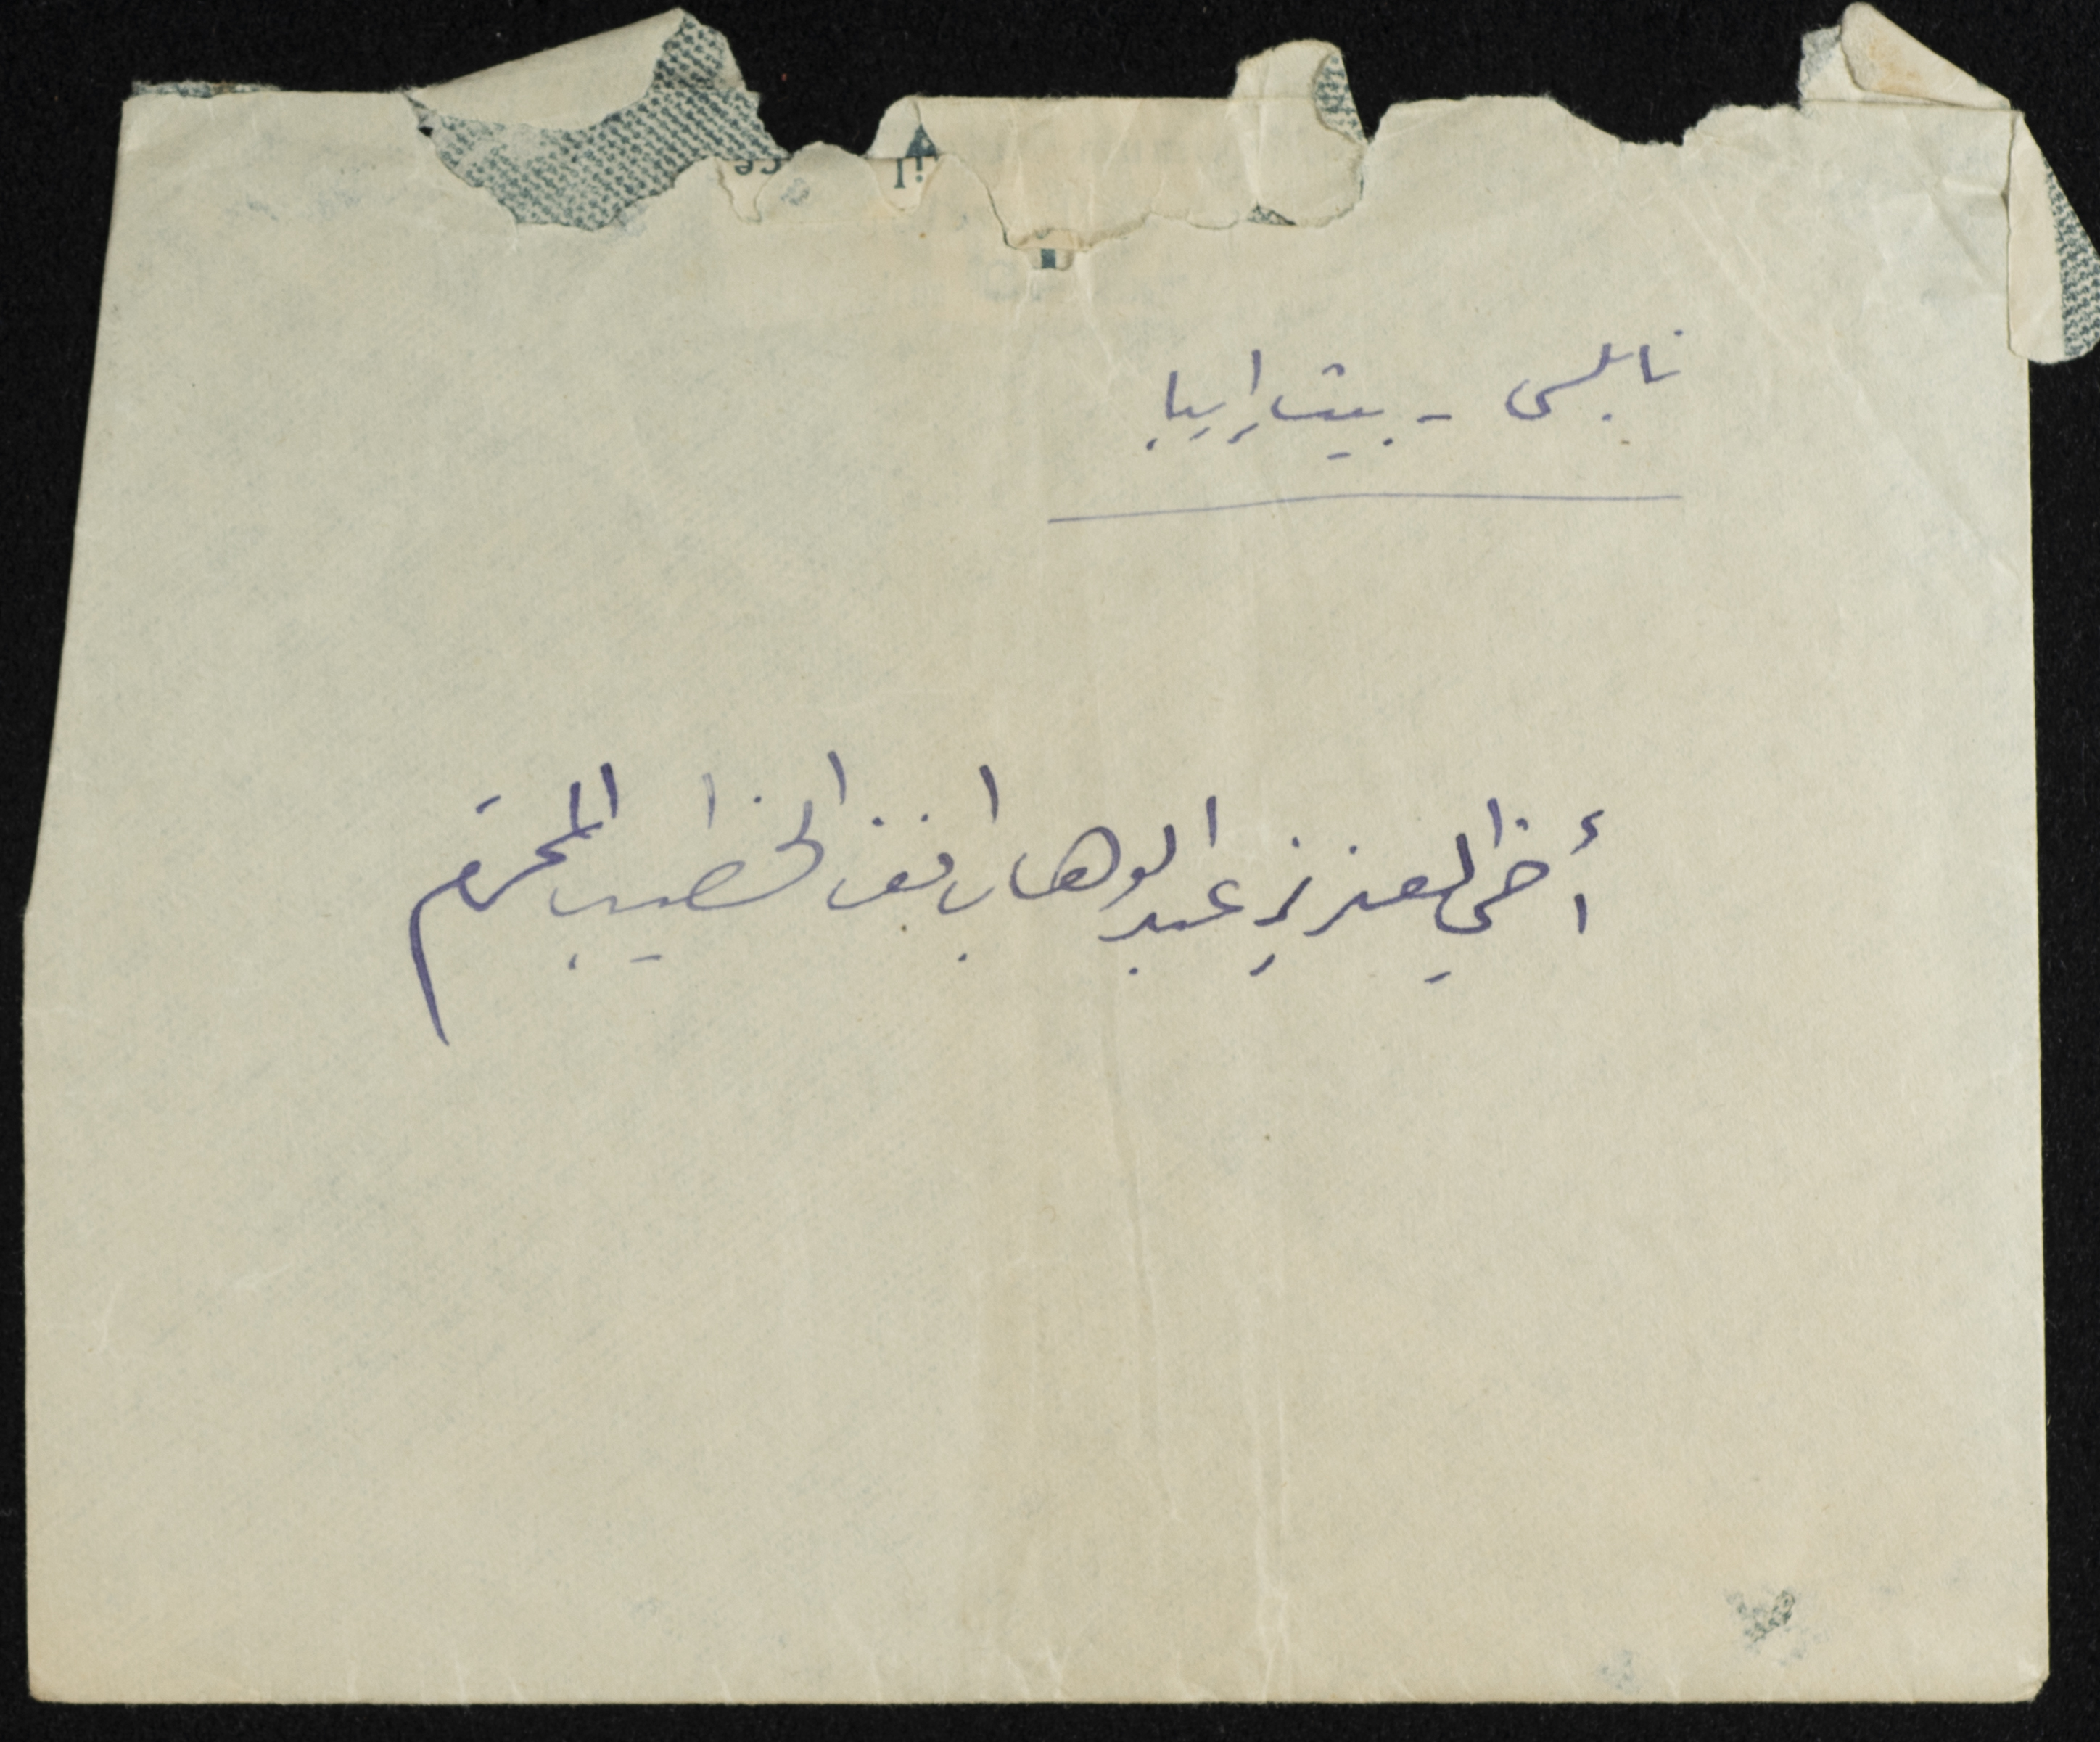 نابلس - بيت إيبا
أخي العزيز عبد الوهاب الخطيب المحترم